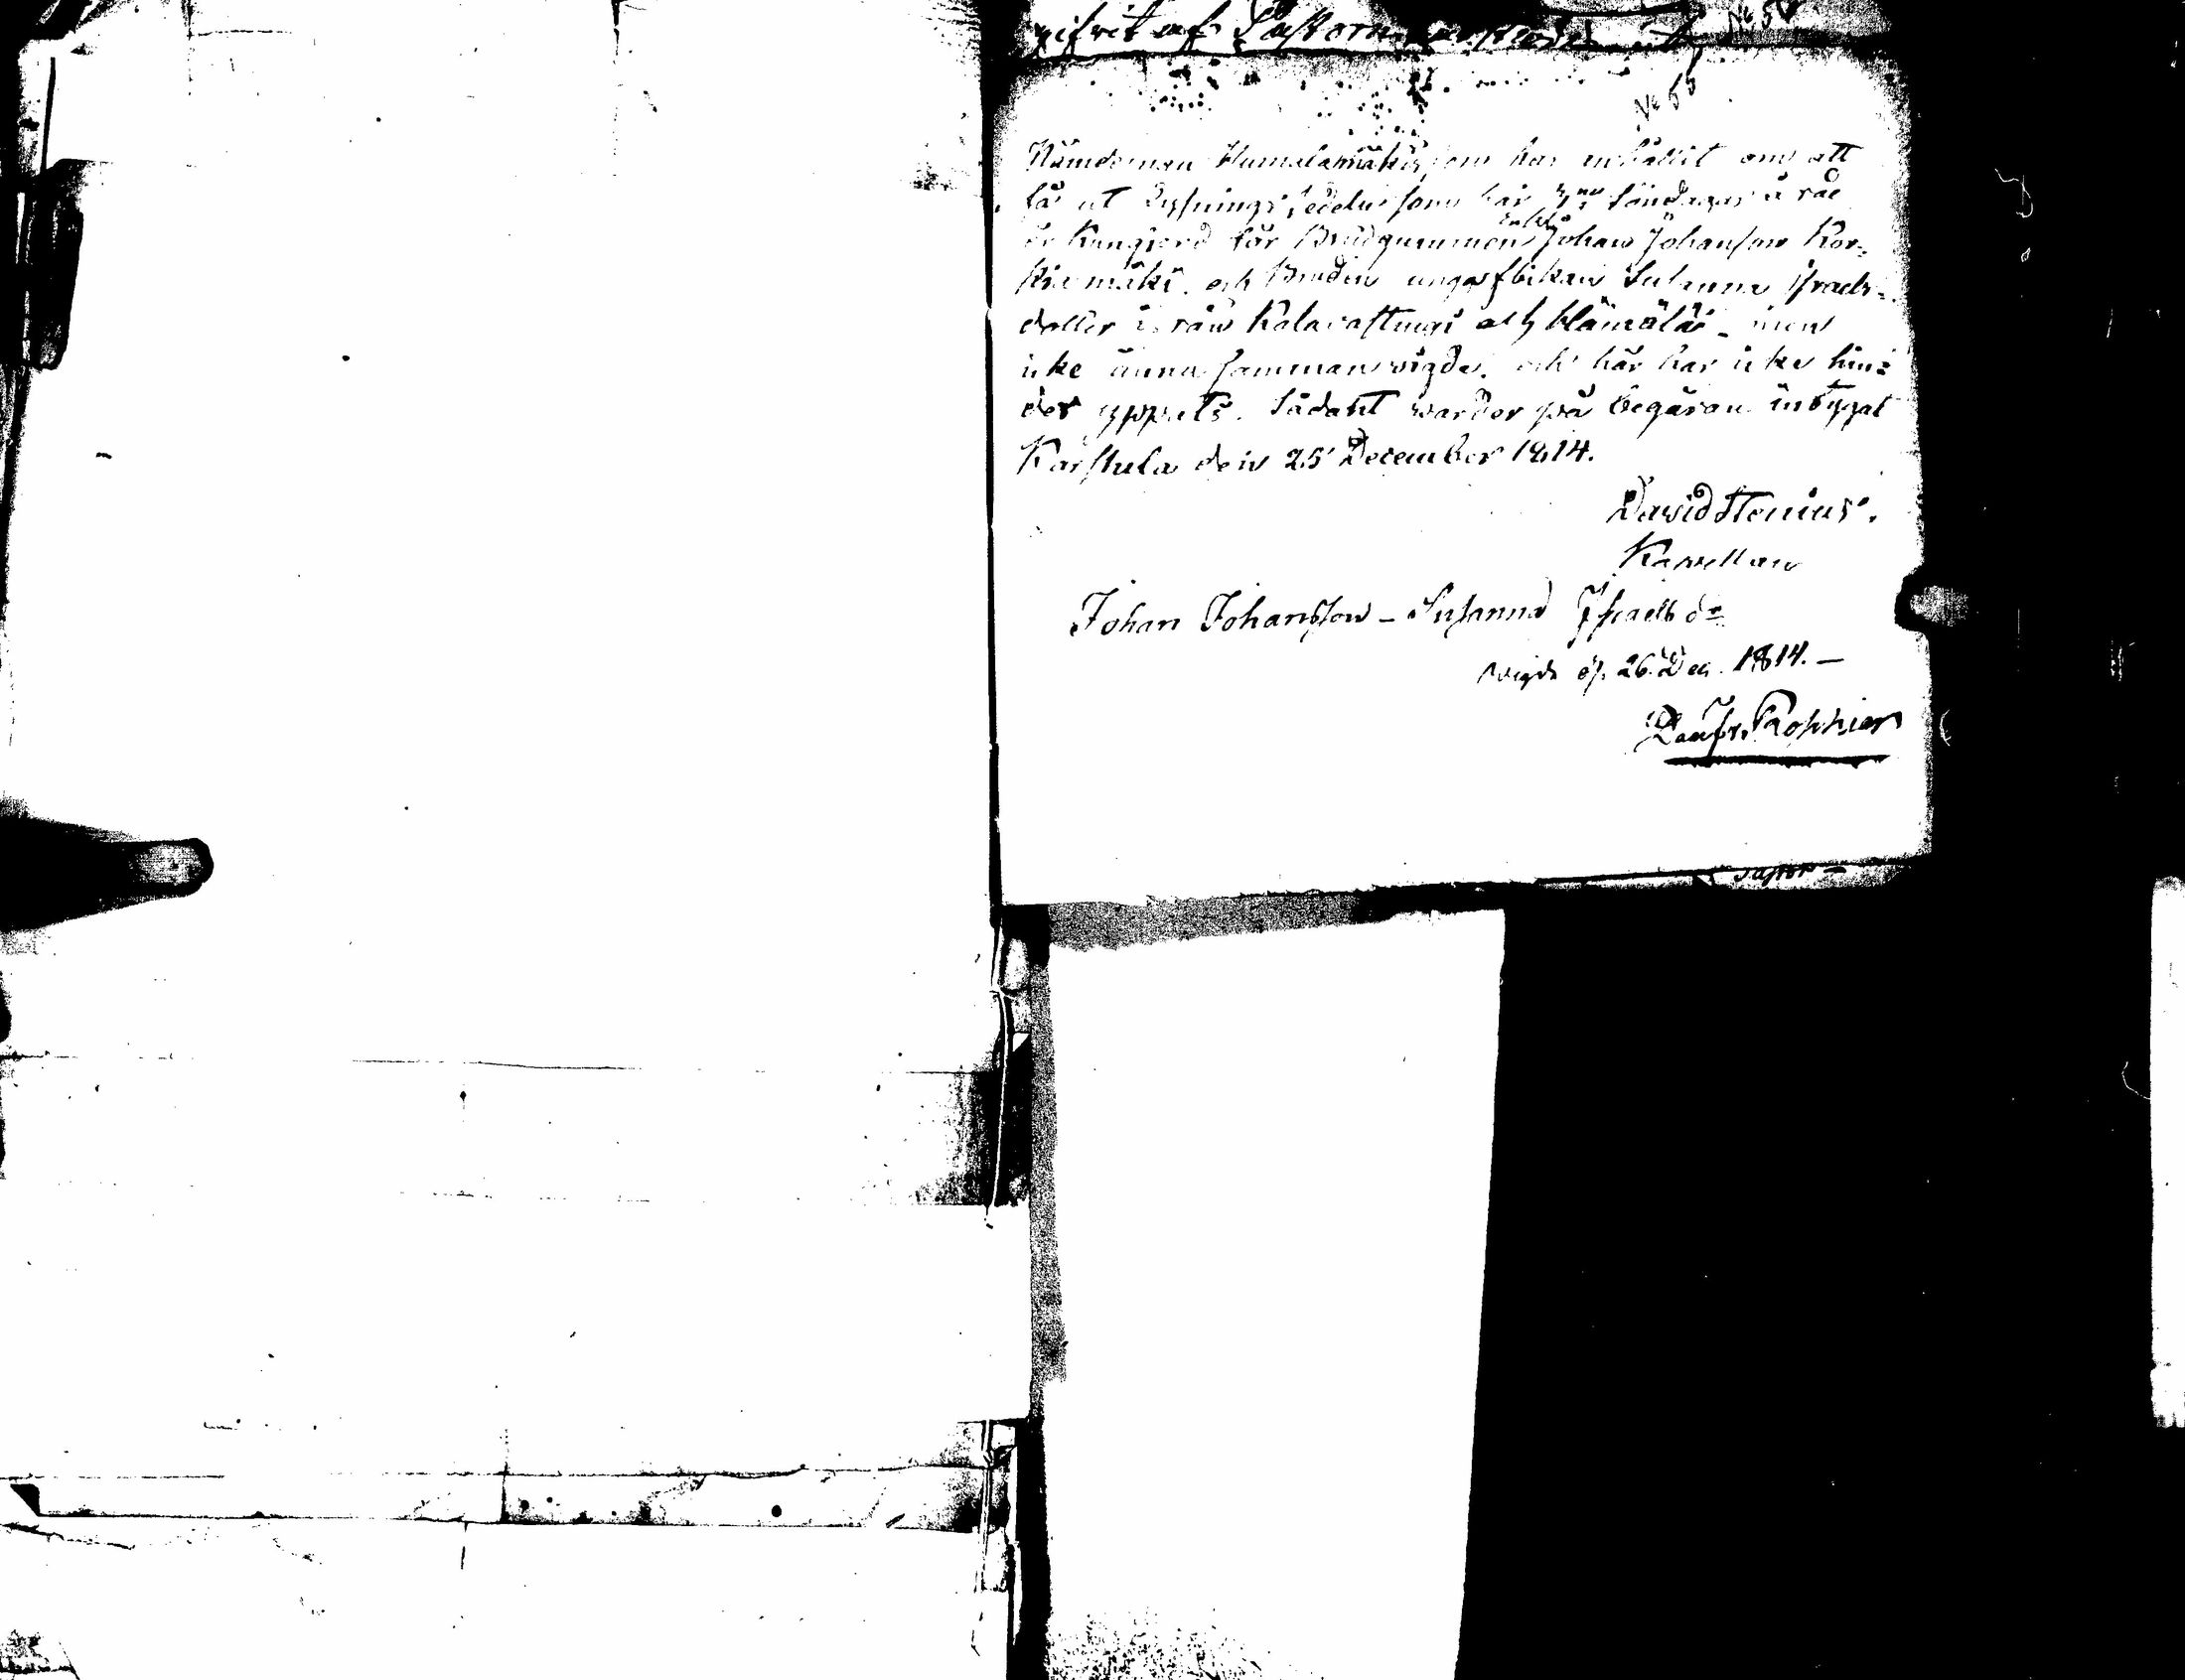 gifvit af Pastorn
No 55
Nämdeman Humalamäki, som har anhållit om att
få ut Lysnings sedeln som här 3ne Söndagar å rad
är Kungjord för Brudgummen Enkl. Johan Johansson Kor-
kiamäki och Bruden unga pikan Susanna Israels-
dotter ifrån Kalavastingi och Hämälä - men
icke ännu samman vigda. och här har icke hin-
der yppats. Sådant warder på begäran intygat
Karstula den 25 December 1814.
David Stenius.
Kapellan
Johan Johansson - Susanna Israels dr
vigde d. 26 Dec. 1814. -
Roschier
Pastor -